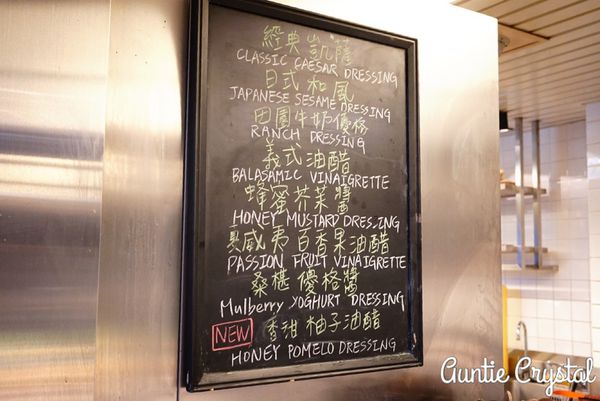 經典凱薩
CLASSIC CAESAR DRESSING
日式和風
JAPANESE SESAME DRESSING
田園牛奶優格
RANCH DRESSING
義式油醋
BALASAMIC VINAIGRETTE
蜂蜜芥菜醬
HONEY MUSTARD DRESSING
夏威夷百香果油醋
PASSION FRUIT VINAIGRETTE
桑椹優格醬
Mulberry YOGHURT DRESSING
NEW 香甜柚子油醋
HONEY POMELO DRESSING
Auntie Crystal